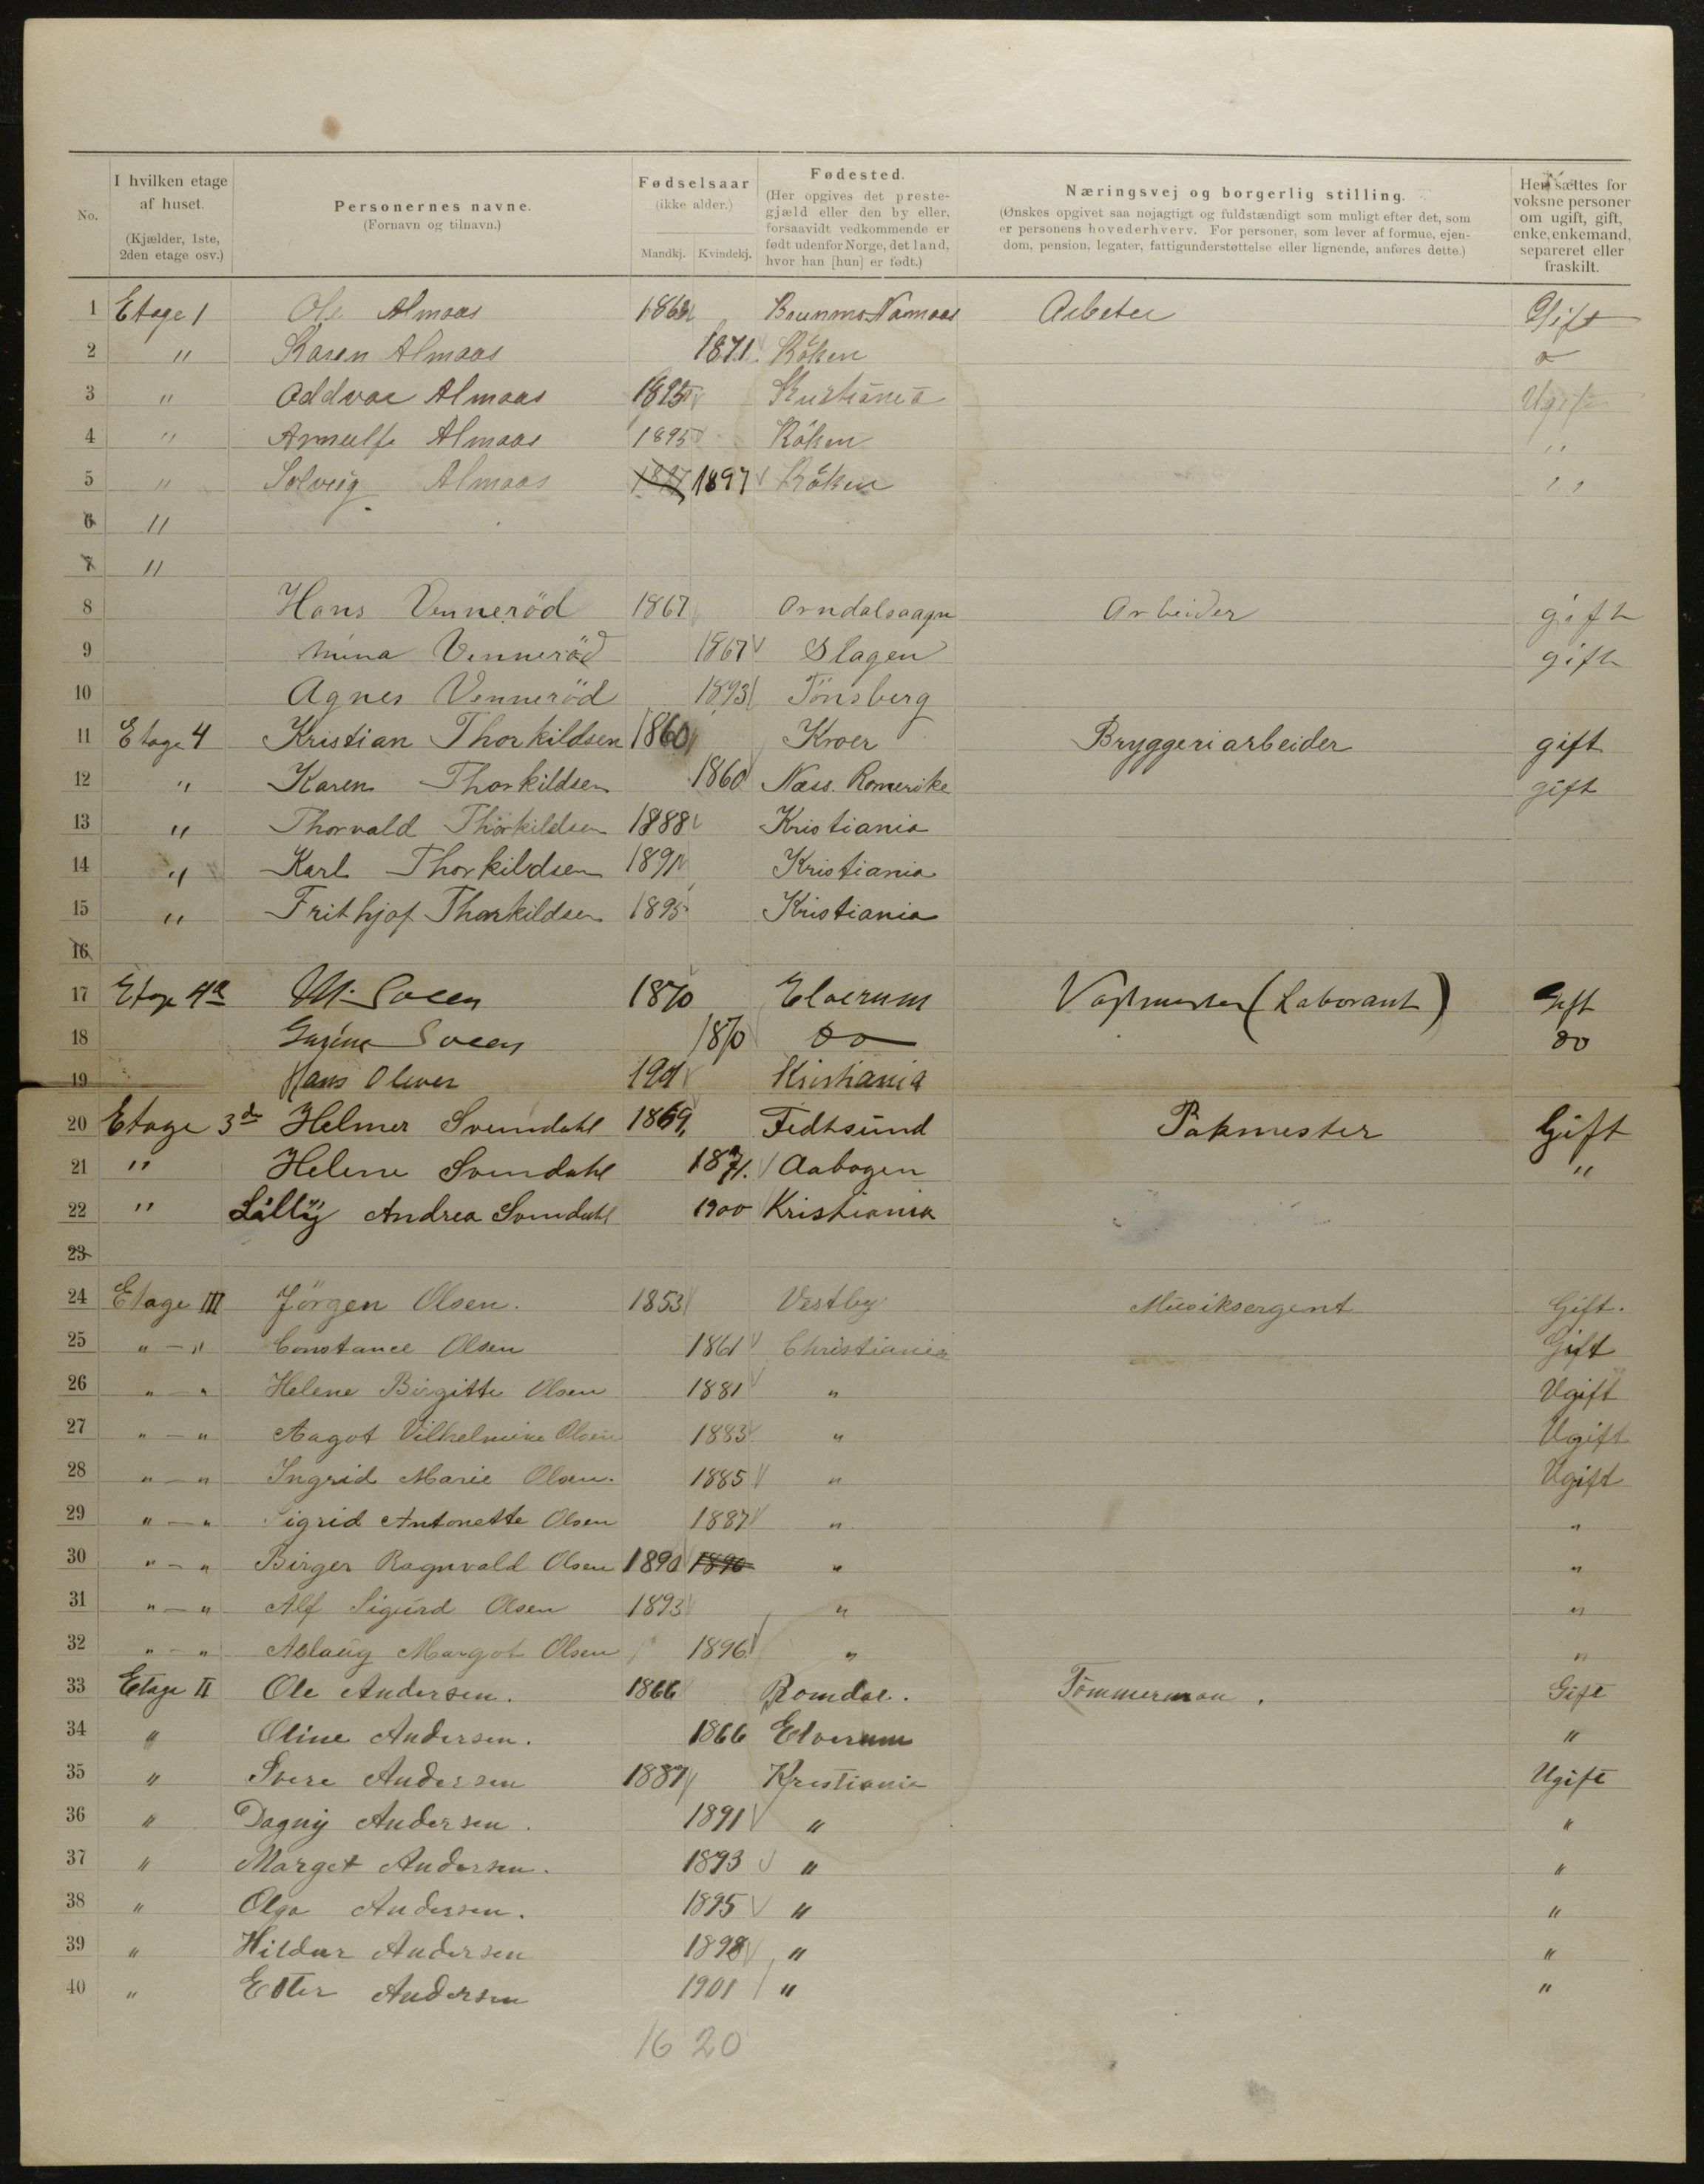 No. | I hvilken etage af huset. (Kjælder, 1ste, 2den etage osv.) | Personernes navne. (Fornavn og tilnavn.) | Fødselsaar (ikke alder.) Mandkj. Kvindekj. | Fødested. (Her opgives det prestegjæld eller den by eller, forsaavidt vedkommende er født udenfor Norge, det land, hvor han [hun] er født.) | Næringsvej og borgerlig stilling. (Ønskes opgivet saa nøjagtigt og fuldstændigt som muligt efter det, som er personens hovederhverv. For personer, som lever af formue, ejendom, pension, legater, fattigunderstøttelse eller lignende, anføres dette.) | Her sættes for voksne personer om ugift, gift, enke, enkemand, separeret eller fraskilt.
1 Etage 1 Ole Almaas Arbeter Gift
2 " Karen Almaas 1871 Röken
3 " Oddvar Almaas Kristiania Ugift
4 " Arneulf Almaas 1895 Röken "
5 " Solveig Almaas 1897 Röken "
6 "
7 "
8 Hans Venneröd 1867 Arbeider gift
9 Mina Venneröd 1867 Slagen gift
10 Agnes Venneröd 1893 Tönsberg
11 Etage 4 Kristian Thorkildsen 1860 Kroer Bryggeriarbeider gift
12 " Karen Thorkildsen 1860 Næss. Romerike gift
13 " Thorvald Thorkildsen 1888 Kristiania
14 " Karl Thorkildsen 1891 Kristiania
15 " Frithjof Thorkildsen 1895 Kristiania
16
17 Etage 4 1870 Elverum (Laborant) Gift
18 1870 do do
19 Hans Oliver 1901 Kristiania
20 Etage 3de Helmer Svendahl 1869 Fedtsund Pakmester Gift
21 " Helene Svendahl 1871. Aabogen "
22 " Lilly Andrea Svendahl 1900 Kristiania
23
24 Etage III Jörgen Olsen. 1853 Vestby Musiksergent Gift.
25 " - " Constance Olsen 1861 Christiania Gift
26 " - " Helene Birgitte Olsen 1881 " Ugift
27 " - " Aagot Vilhelmine Olsen 1883 " Ugift
28 " - " Ingrid Marie Olsen. 1885 " Ugift
29 " - " Sigrid Antonette Olsen 1887 " "
30 " - " Birger Ragnvald Olsen 1890 1890 " "
31 " - " Alf Sigurd Olsen 1893 " "
32 " - " Aslaug Margot Olsen 1896 " "
33 Etage II Ole Andersen. 1866 Romdal. Tömmerman. Gift
34 " Oline Andersen. 1866 Elverum "
35 " Svere Andersen 1887 Kristiania Ugift
36 " Dagny Andersen. 1891 " "
37 " Marget Andersen. 1893 " "
38 " Olga Andersen. 1895 " "
39 " Hildur Andersen 1898 " "
40 " Ester Andersen 1901 " "
16 20